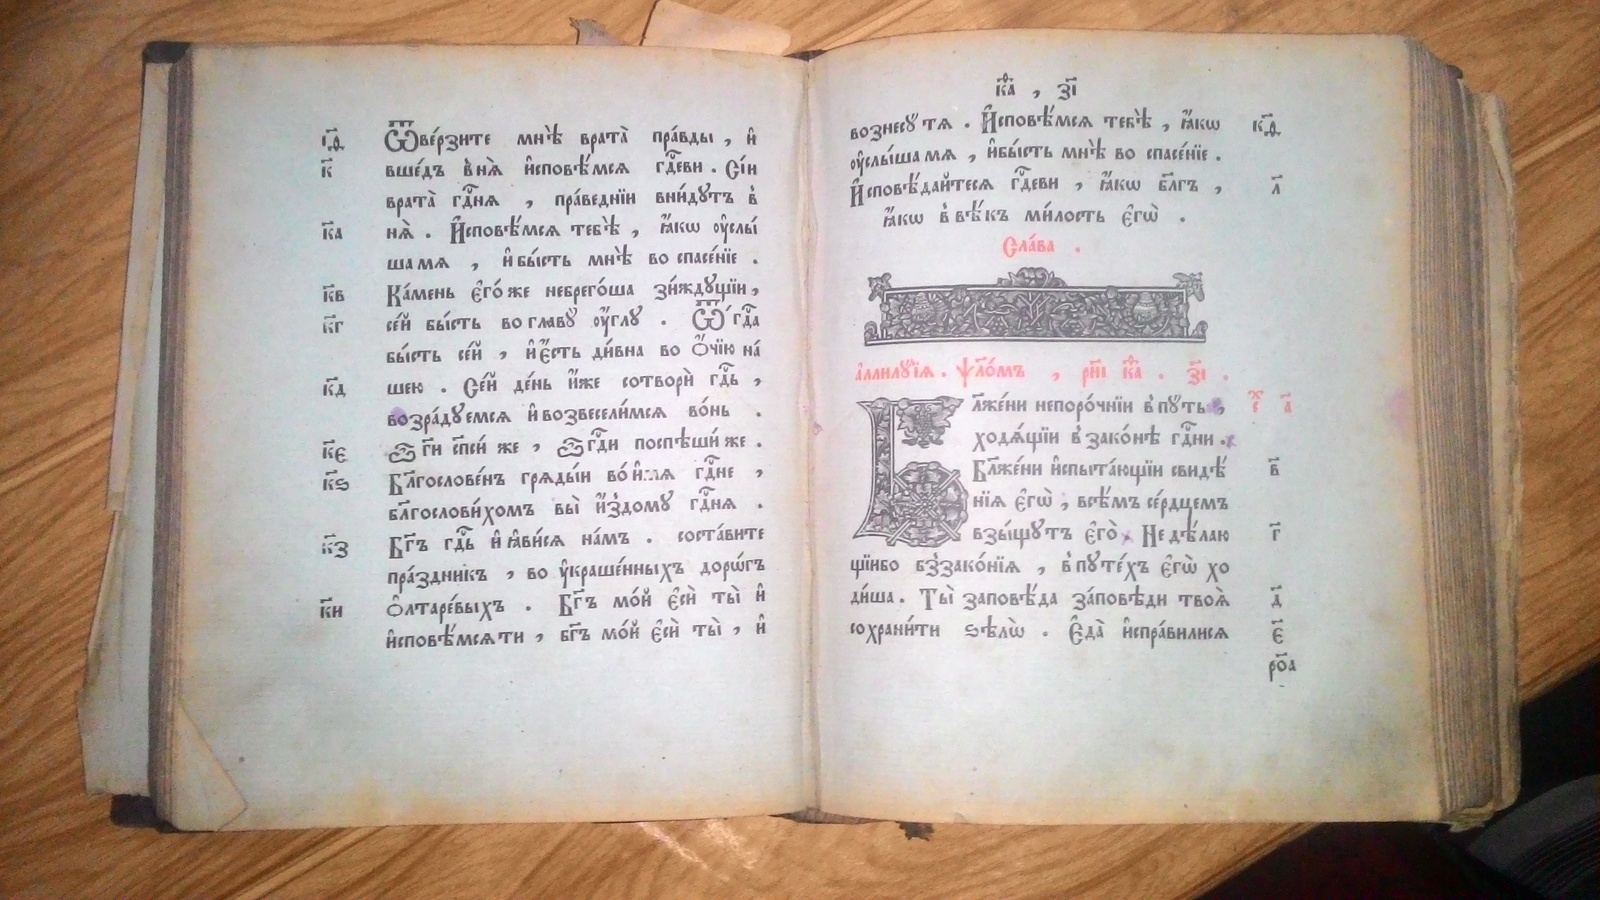 ѳ҃і Ѿве́рзите мнѣ̀ врата̀ пра́вды , и҆
к҃ вше́дъ в̾ня̀ и҆сповѣ́мся гдⷭ҇еви . Сі́и
врата̀ гдⷭ҇ня , пра́веднїи вни́дутъ в̾
к҃а ня̀ . И҆сповѣ́мся тебѣ̀ , ꙗ҆́кѡ ᲂу҆слы́
ша мя , и҆ бы́сть мнѣ̀ во спасе́нїе .
к҃в Ка́мень є҆го́ же небрего́ша зи́ждущїи ,
к҃г се́й бы́сть во главу ᲂу҆́глу . Ѿ гдⷭ҇а
бы́сть се́й , и҆ є҆́сть ди́вна во ѻ҆́чїю на́
к҃д шею . Се́й де́нь и҆́же сотворѝ гдⷭ҇ь ,
возра́дуемся и҆ возвесели́мся во́нь .
к҃є Ѽ гⷭ҇и сп҃си́ же , ѽ гдⷭ҇и поспѣши́ же .
к҃ѕ Бл҃гослове́нъ гряды́и во́ имя гдⷭ҇не ,
бл҃гослови́хомъ вы̀ и҆з̾дому гдⷭ҇ня .
к҃з Бг҃ъ гдⷭ҇ь и҆ ꙗ҆ви́ся на́мъ . соста́вите
пра́здникъ , во ᲂу҆краше́нныхъ дорѡ́гъ
к҃и ѻ҆лтаре́выхъ . Бг҃ъ мо́й є҆сѝ ты̀ и҆
и҆сповѣ́мся ти , бг҃ъ мо́й є҆сѝ ты̀ , и҆
каѳ , з҃і
вознесу тя . И҆сповѣ́мся тебѣ̀ , ꙗ҆́кѡ к҃ѳ
ᲂу҆слы́ша мя , и҆ бы́сть мнѣ̀ во спасе́нїе .
И҆сповѣ́дайтеся гдⷭ҇еви , ꙗ҆́кѡ бл҃гъ , л҃
ꙗ҆́кѡ в̾ вѣ́къ ми́лость є҆гѡ̀ .
Сла́ва .
а҆ллилу́їя . Ѱало́мъ , рн҃і каѳ . з҃і .
Бл҃же́ни непоро́чнїи в̾ путь , а҃
ходя́щїи в̾ зако́нѣ гдⷭ҇ни .
Бл҃же́ни и҆спыта́ющїи свидѣ́ в҃
нїя є҆гѡ̀ , всѣ́мъ се́рдцемъ
взы́щутъ є҆го̀ . Не дѣ́лаю г҃
щїи бо бз̾зако́нїя , в̾ путе́хъ є҆гѡ̀ хо
ди́ша . Ты̀ заповѣ́да за́повѣди твоя̀ д҃
сохрани́ти ѕѣлѡ̀ . Є҆да̀ и҆спра́вилися є҃
ро҃а